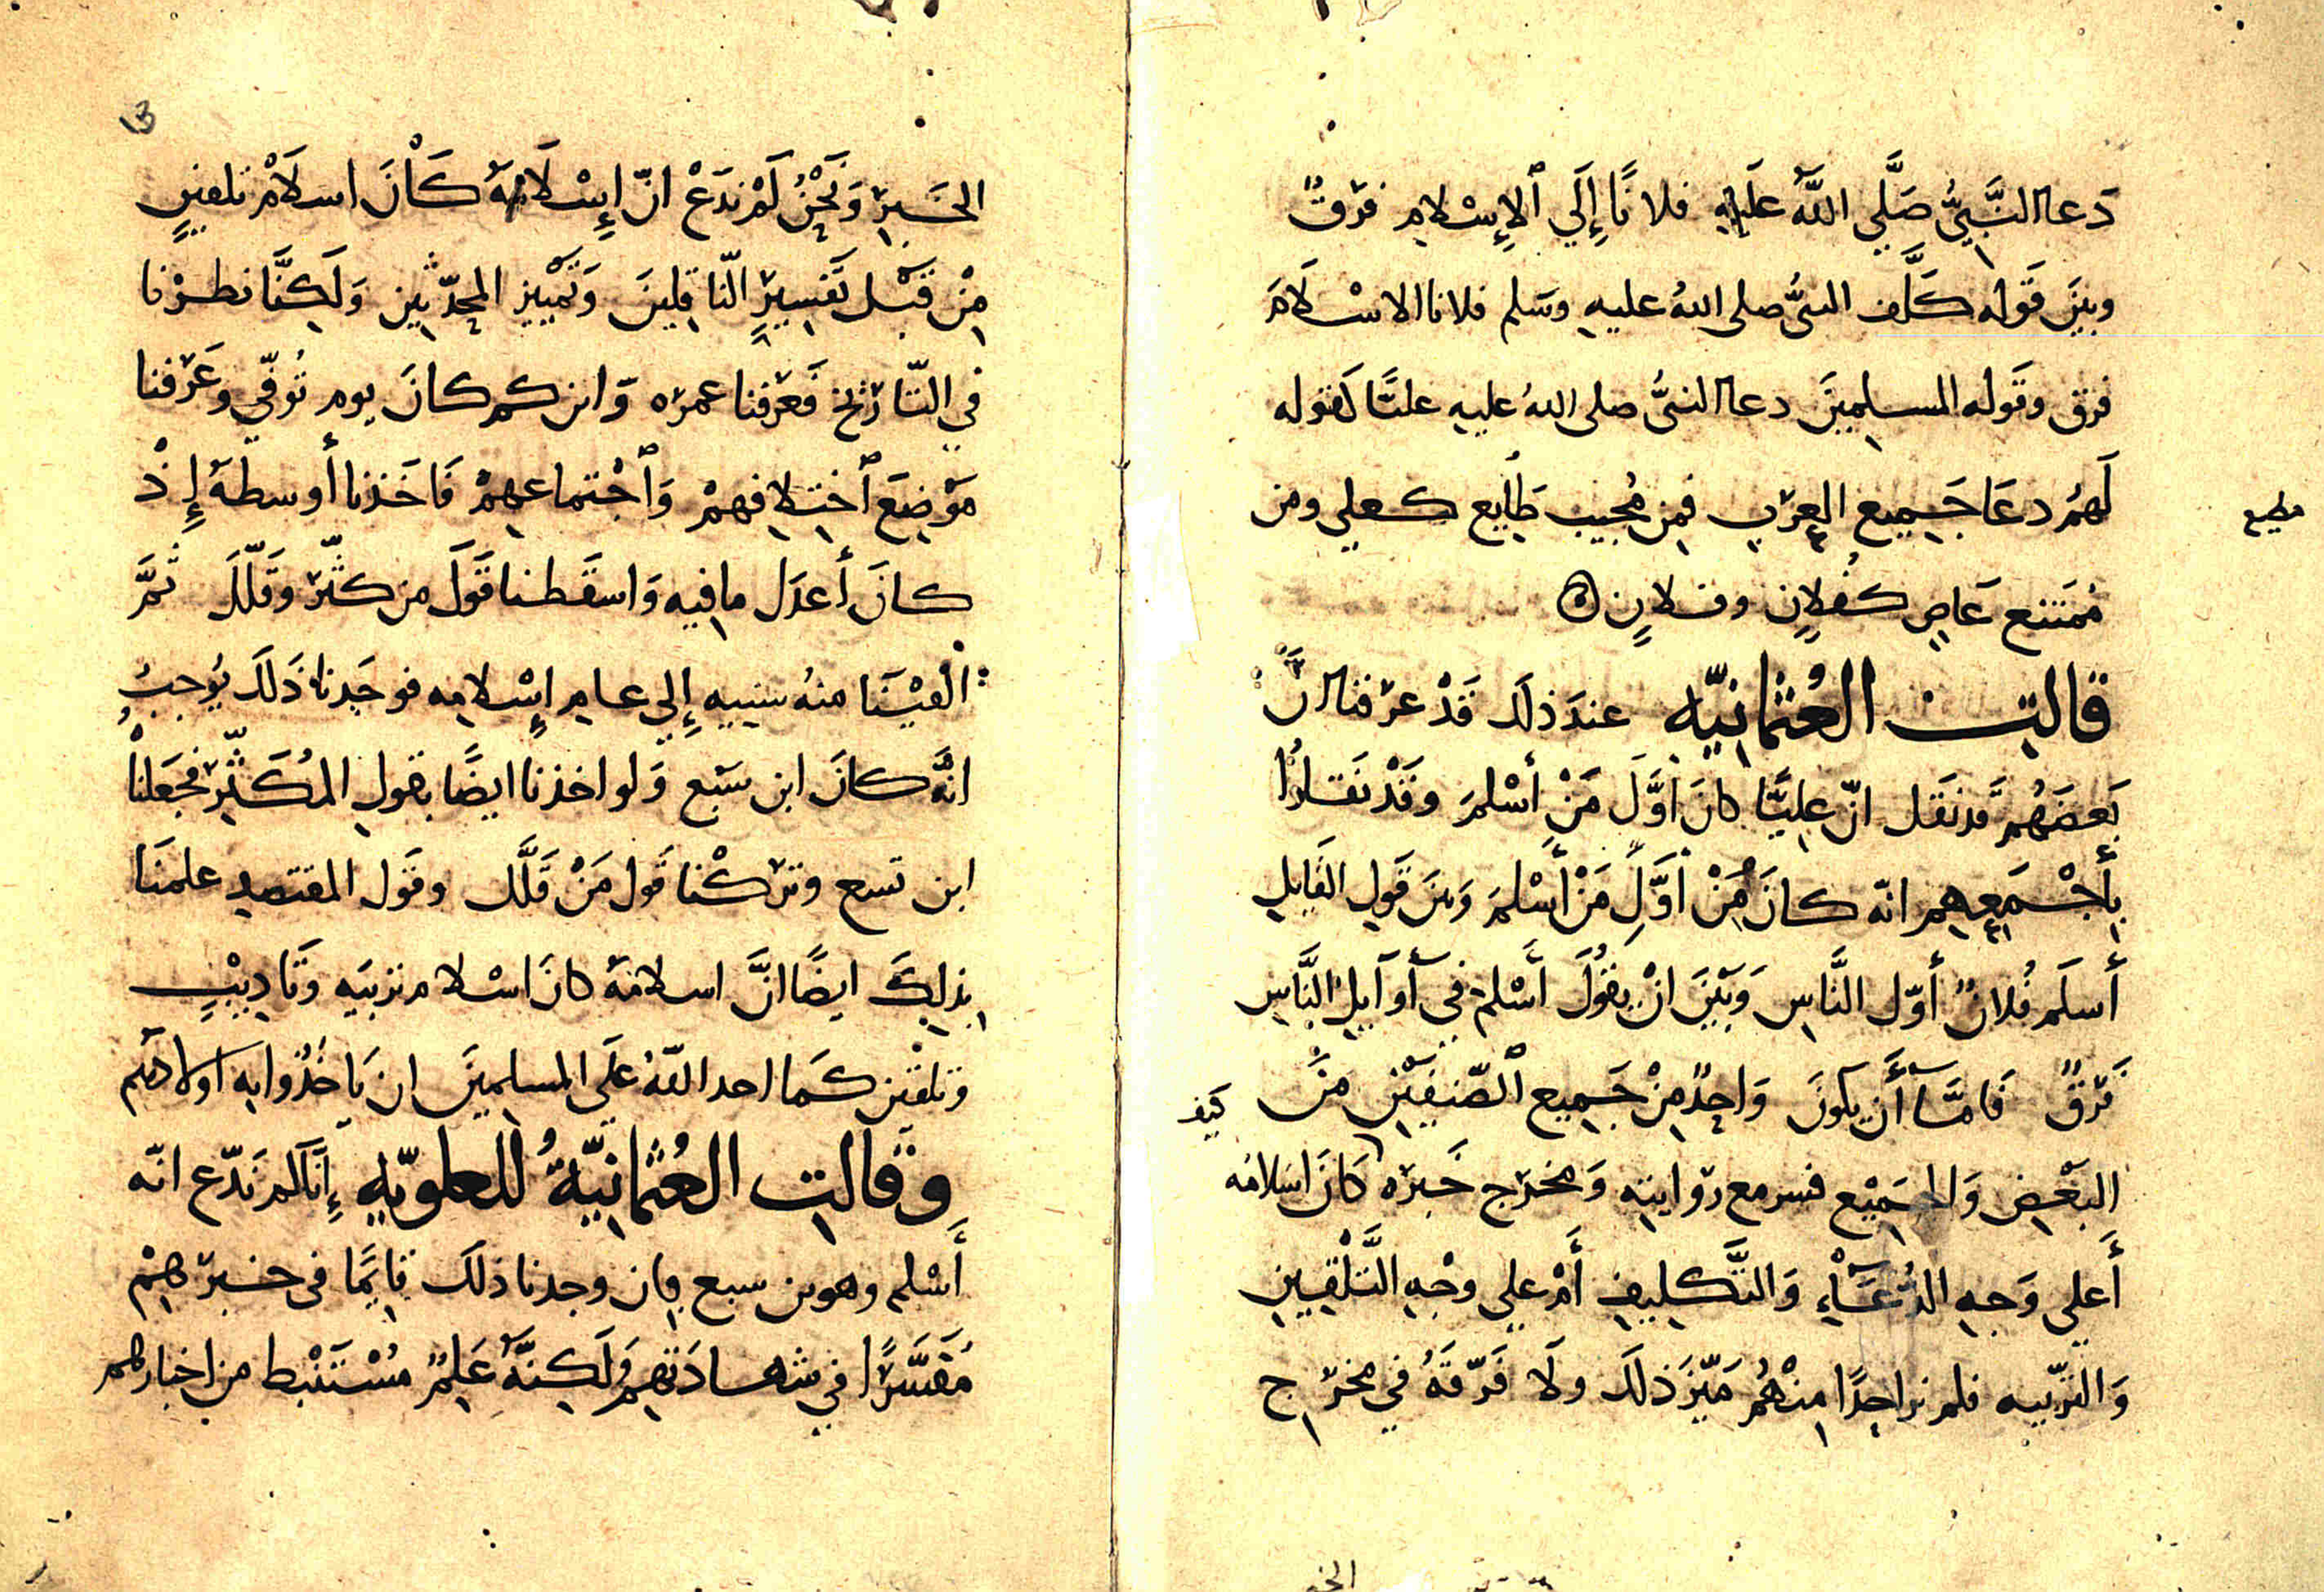 دَعا النَّبِيُّ صَلَّي اللَّهُ عَلَيهِ فلانًا إِلَي ٱلإِسْلامِ فرْقٌ
وبينَ قَوله كَلَّف النبيُّ صلى اللهُ عليهِ وسَلم فلانا الاسْلَامَ
فرق وقَوله المسلِمِينَ دعا النبيُّ صلى اللهُ عليهِ عليًّا كقوله
لَهُم دعَا جَمِيع العرَبِ فمِن مُجيب طَايع كعلي ومن
مطيع
مُمَتنع عَاصٍ كفُلانٍ وفلانٍ
قالتِ العُثْمانِيّه عندَ ذلك قَدْ عرَفنا انَّ
بَعضَهُم قد نَقَل انّ علِيًّا كانَ أوَّلَ مَنْ أسْلمَ وقَدْ نقلوا
بِأَجْمَعِهِم انّه كانَ مِنْ أوَّلِ مَنْ أسْلمَ وبينَ قَولِ القَايلِ
أسلَم فُلانٌ أوّل النَّاسِ وَبَيْنَ انْ يقُولَ أَسْلم في أَوَآيلِ النَّاسِ
فَرْقٌ فَامَّا أَن يكونَ وَاحِدٌ مِنْ جَمِيع ٱلصّنفَيْنِ مَيَّز
كيف
البَعْضِ وَالجَمِيْع فسر مع رِوَايتِه وَمخرَج خَبَرَه كَانَ اسْلامُه
أَعلي وَجهِ الدُّعَآءِ وَالتَّكلِيفِ أَمْ علي وجْهِ التَّلْقِينِ
وَالتّربيه فلم نر احِدًا مِنْهُم مَيّزَ ذلكَ ولَا فَرّقَهُ في مخرَج
الخَبَرِ وَنَحْنُ لَم ندَعْ انّ إِسْلَامَهُ كَانَ اسلَامَ تلقينٍ
مِنْ قَبْل تَفسِيرِ النّاقِلِينَ وَتَمْييزِ المحدّثِين وَلَكِنَّا نظرْنا
في التّارِيخ فَعرَفنا عمرَه وَابن كم كانَ يوم تُوفّي وَعَرَفنا
مَوْضِعَ ٱختِلافِهِمْ وَٱجْتماعِهِمْ فَاخَذنا أوسطَهُ إِذْ
كانَ أَعدَل ما فِيه وَاسقَطنا قَولَ من كثّرَ وقَلّلَ ثمَّ
القَيْنَا منهُ سِنِيه إِلي عامِ إِسْلامِه فوجَدنا ذَلكَ يُوجبُ
انَّه كانَ ابن سَبْع وَلو اخذنا ايضًا بقولِ المُكَثِّرِ فجَعَلناهُ
ابن تسع وتَركْنا قَول مَنْ قَلَّل وقَول المقتصِدِ علمنَا
بِذلِكَ ايضًا انَّ اسلامَهُ كانَ اسْلام تربيَه وتَادِيبٍ
وتلقين كمَا اخذ اللّهُ علَي المسلمِينَ ان يَاخُذُوا بِه اولادهُم
وقالتِ العُثمانِيّةُ للعلوِيّهِ إِنَّا لم نَدّعِ انّه
أَسْلم وهو بن سبع فإن وجدنا ذلكَ قايِمًا في خبرِهِمْ
مُفَسَّرًا في شهادَتهِم وَلَكِنَّهُ عَلِمٌ مُسْتَنْبط من اخبارهم